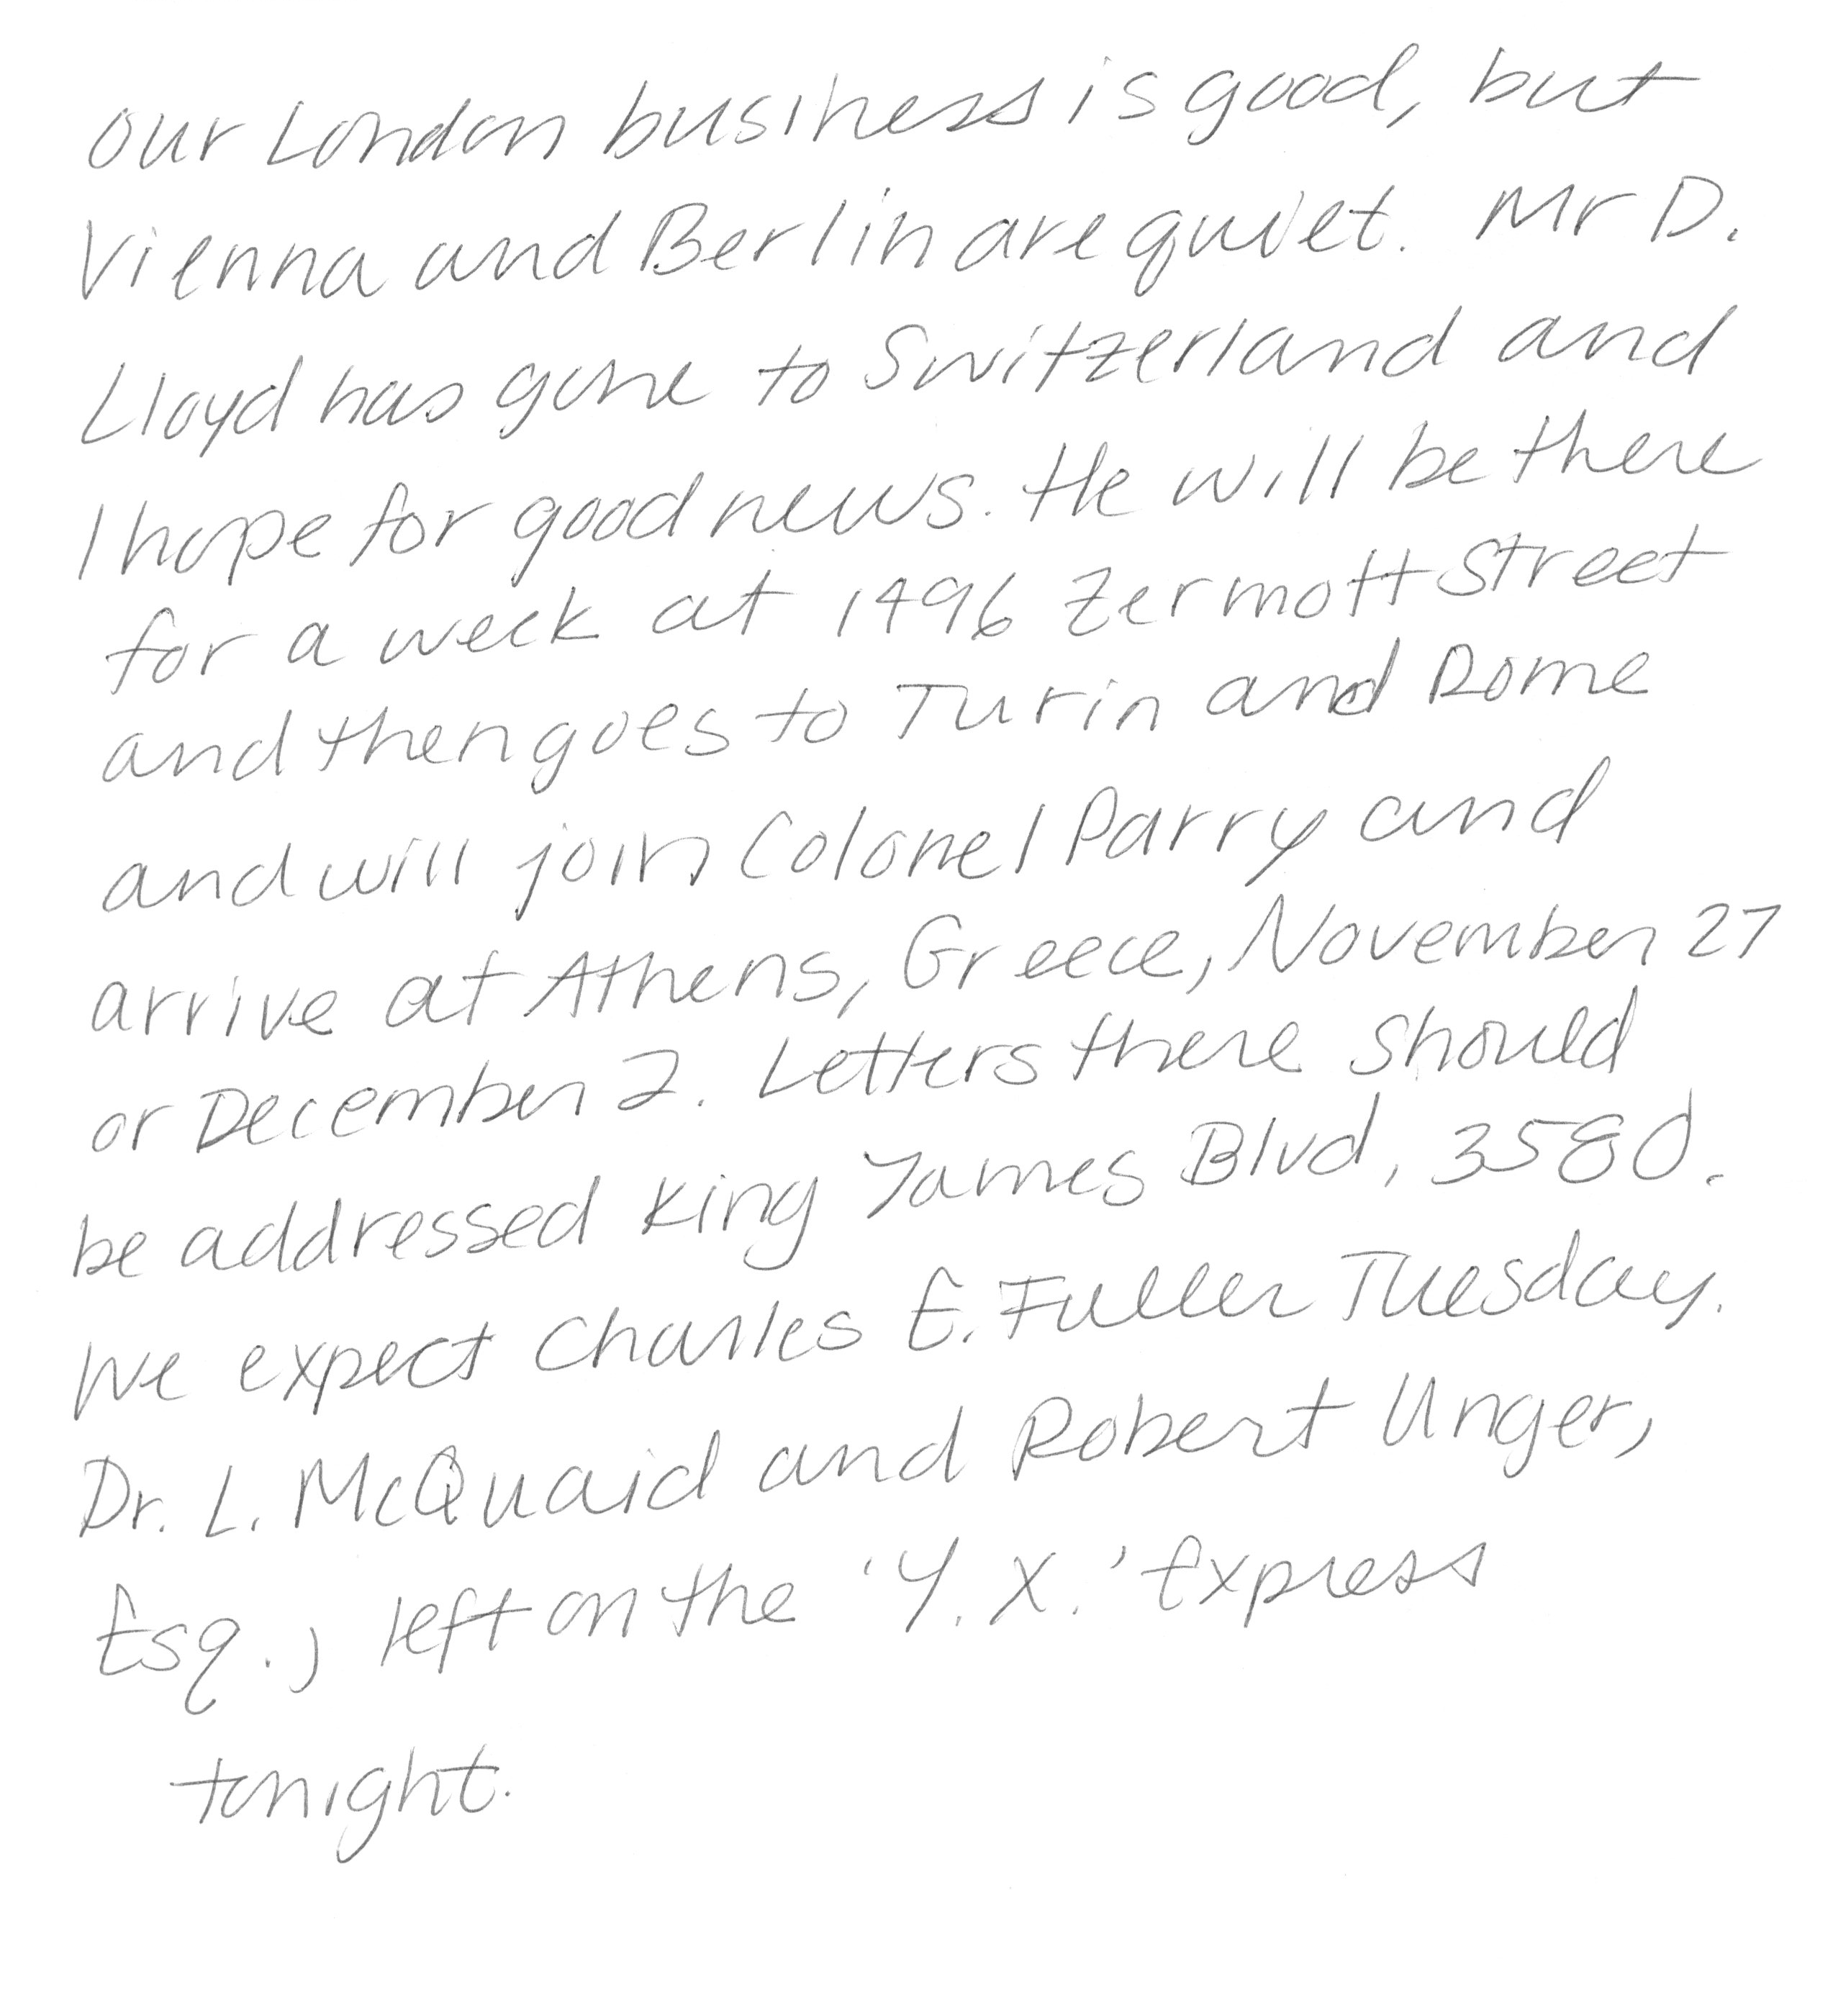 Our London business is good, but
Vienna and Berlin are quiet. Mr D.
Lloyd has gone to Switzerland and
I hope for good news. He will be there
for a week at 1496 Zermott Street
and then goes to Turin and Rome
and will join Colonel Parry and
arrive at Athens, Greece, November 27
or December 2. Letters there should
be addressed King James Blvd, 3580.
We expect Charles E. Fuller Tuesday.
Dr. L. McQuaid and Robert Unger,
Esq., left on the 'Y. X.' Express
tonight.